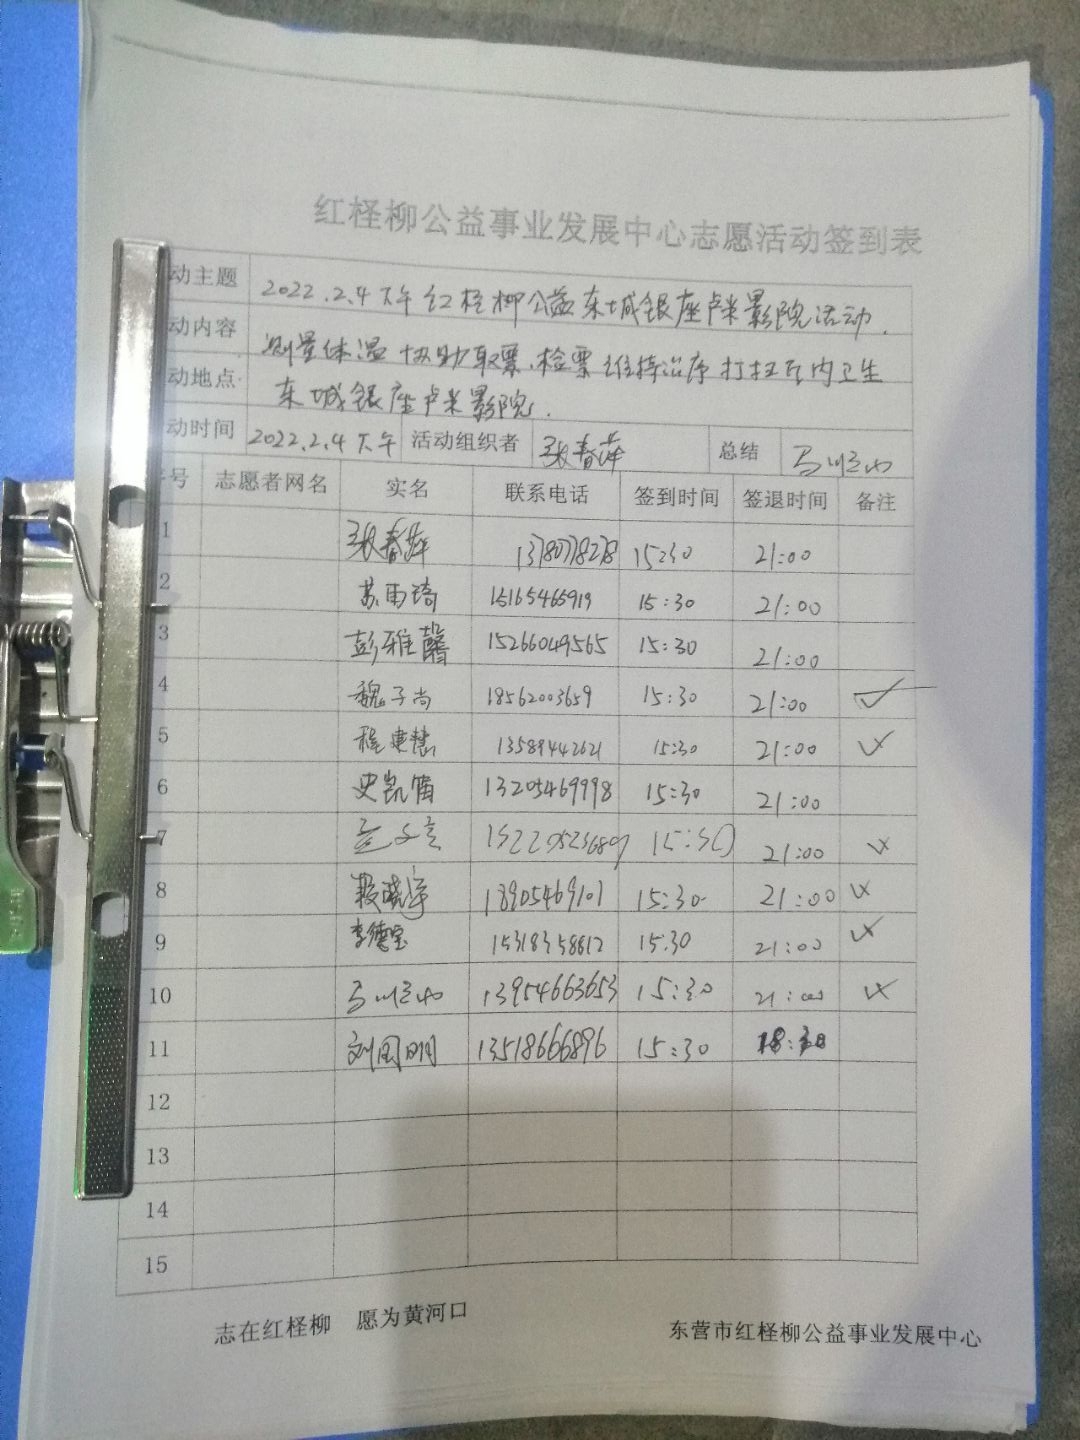 红柽柳公益事业发展中心志愿活动签到表
动主题 2022.2.4下午红柽柳公益东城银座卢米影院活动.
动内容 测量体温 协助取票.检票 维持治序 打扫厅内卫生
动地点 东城银座卢米影院.
动时间 2022.2.4下午 活动组织者 张春萍 总结
号 志愿者网名 实名 联系电话 签到时间 签退时间 备注
1 张春萍 13780778278 15:30 21:00
2 苏雨琦 15165465919 15:30 21:00
3 彭雅馨 15266049565 15:30 21:00
4 魏子尚 18562003659 15:30 21:00 ✓
5 程建慧 13589442621 15:30 21:00
6 史凯 13205469998 15:30 21:00
7 15:30 21:00
8 段晓宇 18905469101 15:30 21:00
9 李德宝 15318358812 15:30 21:00
10 13954663653 15:30 21:00
11 刘国明 13518666896 15:30 18:30
12
13
14
15
志在红柽柳 愿为黄河口
东营市红柽柳公益事业发展中心